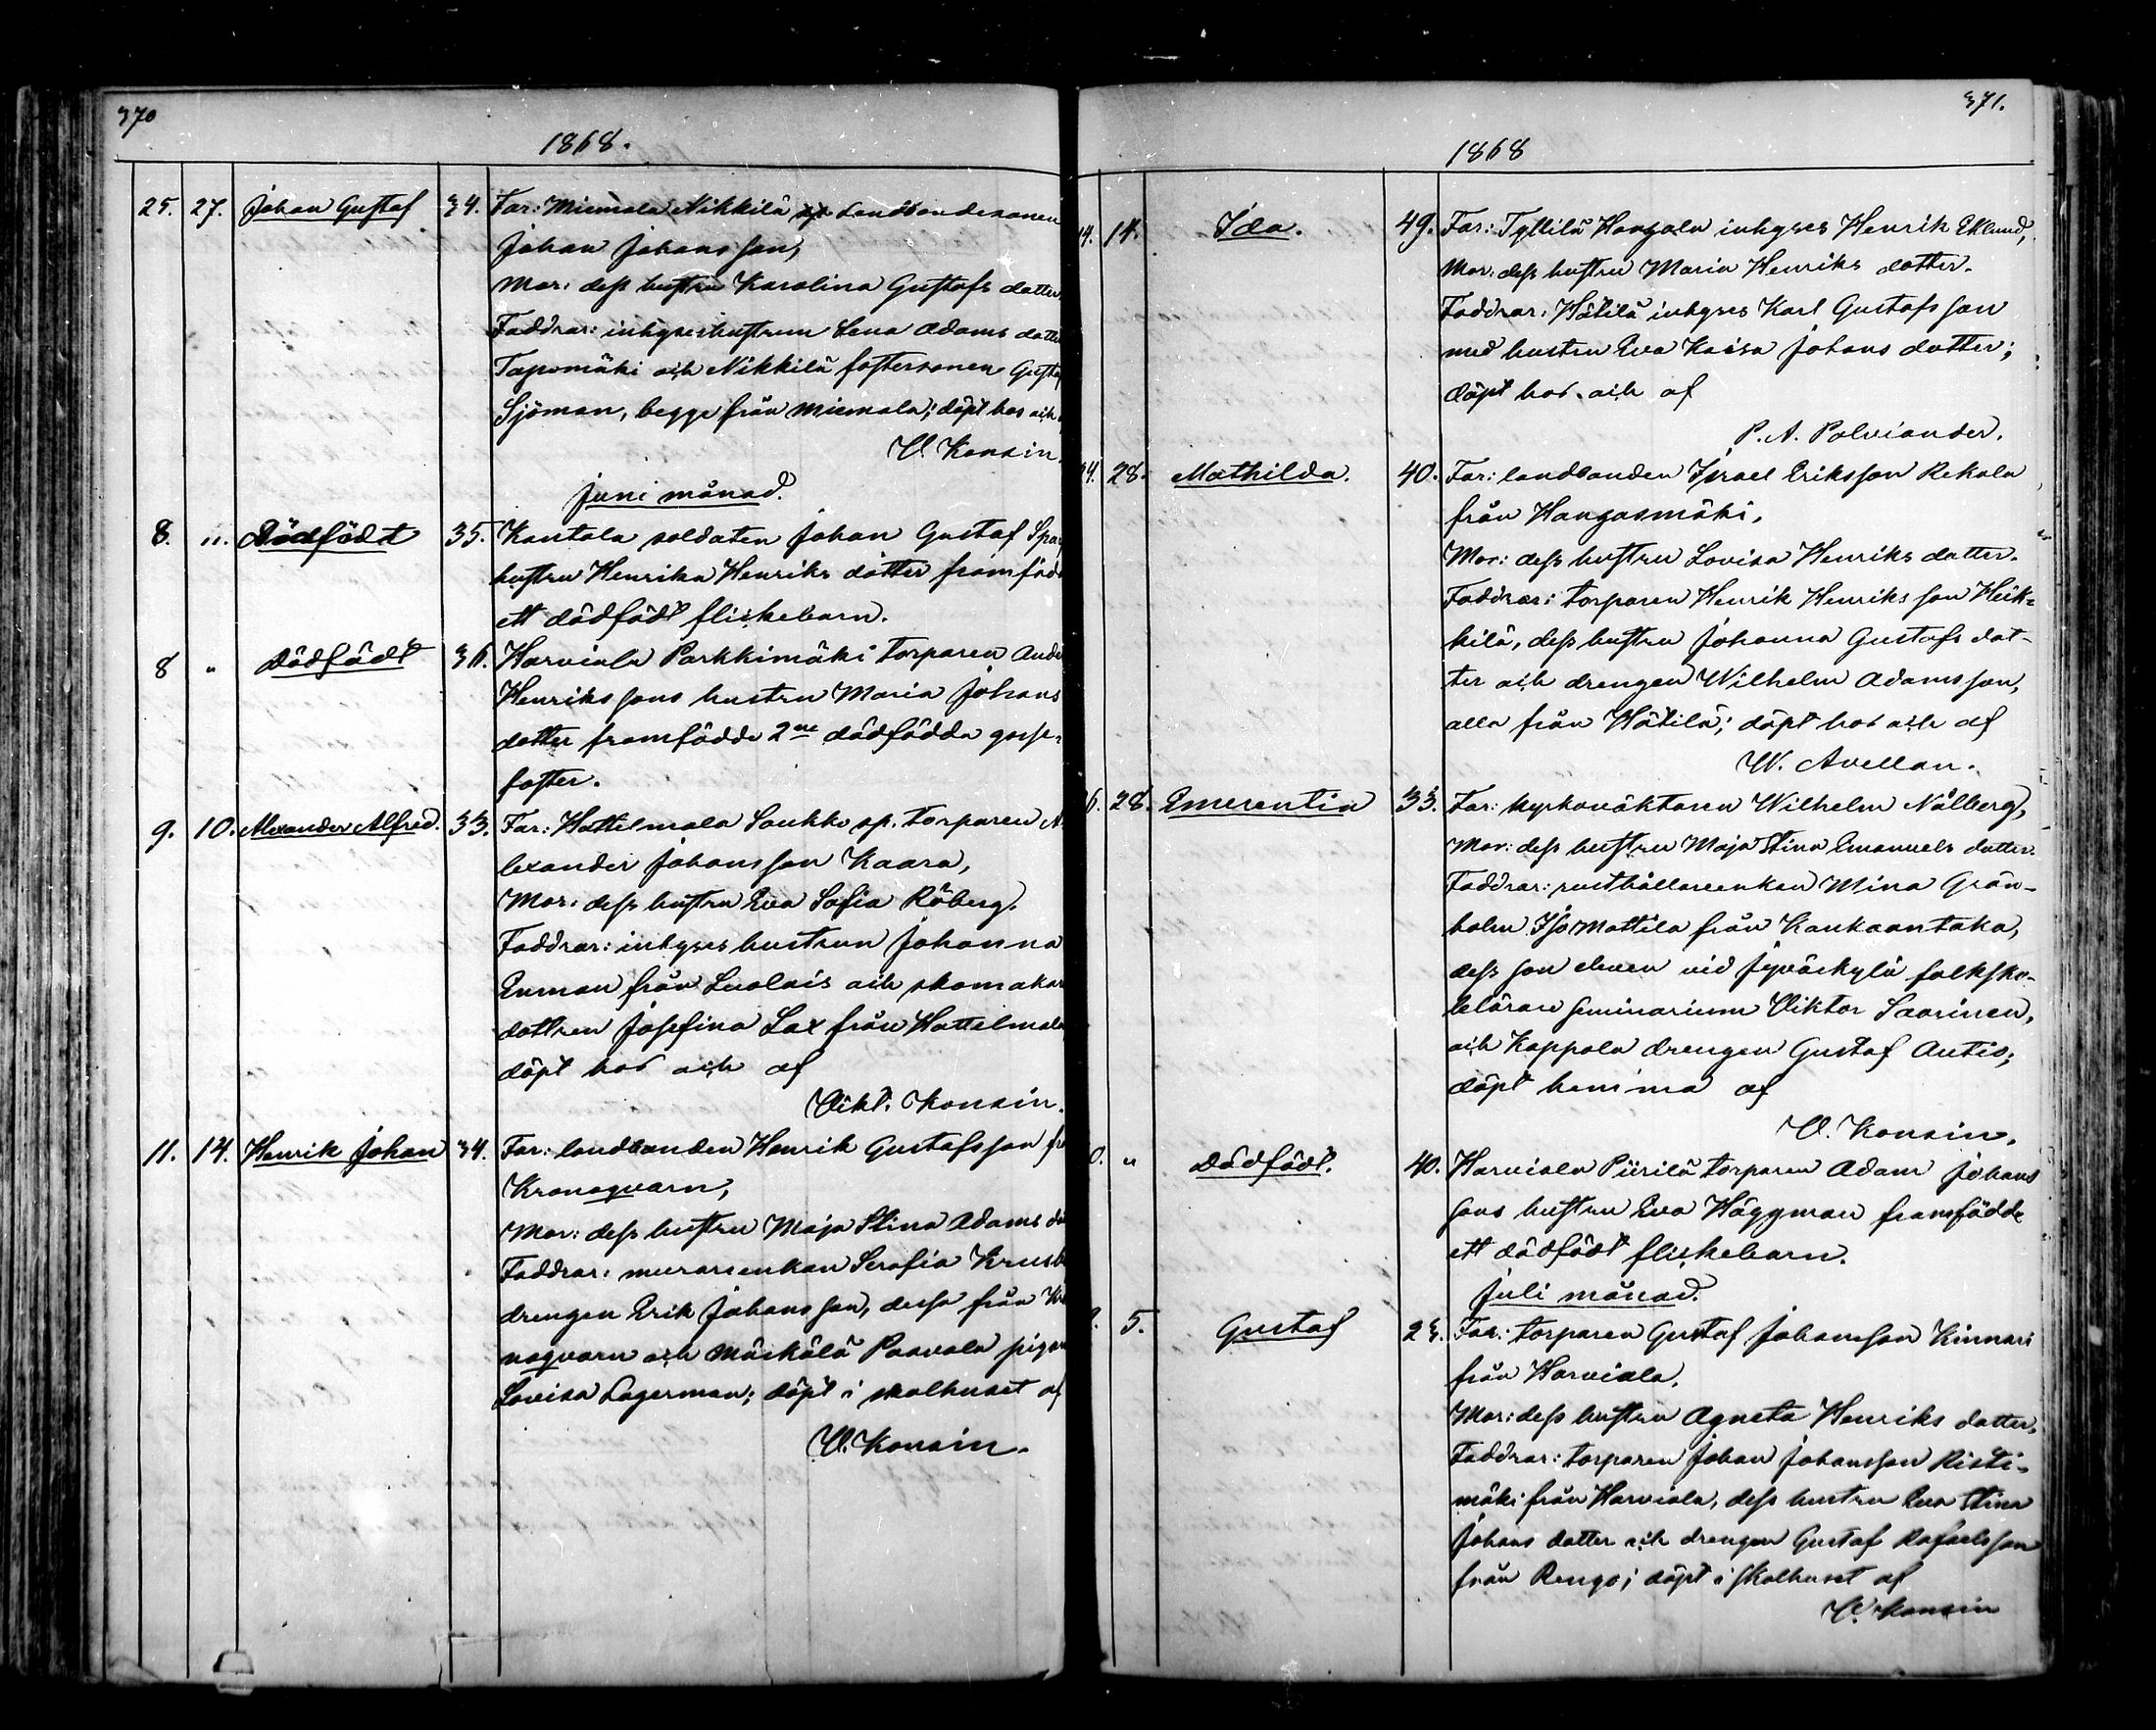 370
1868.
25. 27. Johan Gustaf 34. Far: Miemala Nikkilä landbondesonen
Johan Johansson,
Mor: dess hustru Karolina Gustafs dotter
Faddrar: inhyseshustrun Lena Adams dotter
Tapomäki och Nikkilä fostersonen Gustaf
Sjöman, begge från Miemala; döpt hos och
V. Konsin.
Juni månad.
8. „. Dödfödt 35. Kantola soldaten Johan Gustaf
hustru Henrika Henriks dotter framföd
ett dödfödt flickebarn.
8 „ Dödfödt 36. Harviala Parkkimäki torparen Ande
Henrikssons hustru Maria Johans
dotter framfödde 2ne dödfödda gosse-
foster.
9. 10. Alexander Alfred. 33. Far: Hattelmala Saukko sp. torparen A
lexander Johansson Kaara,
Mor: dess hustru Eva Sofia Röberg.
Faddrar: inhyses hustrun Johanna
Enman från Luolais och skomakar
dottren Josefina Lax från Hattelmala
döpt hos och af
Vikt. Konsin.
11. 14. Henrik Johan 34. Far: landbonden Henrik Gustafsson frå
Kronoqvarn,
Mor: dess hustru Maja Stina Adams do
Faddrar: murareenkan Serafia Krusb
drengen Erik Johansson, dessa från Kro
noqvarn och Mäskälä Paavola pigan
Lovisa Lagerman; döpt i skolhuset af
V. Konsin.
371.
1868
14. 14. Ida. 49. Far: Tyllilä Hongola inhyses Henrik Eklund,
Mor: dess hustru Maria Henriks dotter.
Faddrar: Hätilä inhyses Karl Gustafsson
med hustru Eva Kaisa Johans dotter;
döpt hos och af
P. A. Polviander.
24. 28. Mathilda. 40. Far: landbonden Israel Eriksson Rekola
från Hangasmäki,
Mor: dess hustru Lovisa Henriks dotter.
Faddrar: torparen Henrik Henriksson Heik-
kilä, dess hustru Johanna Gustafs dot-
ter och drengen Wilhelm Adamsson,
alla från Hätilä; döpt hos och af
W. Avellan.
26. 28. Emerentia 33. Far: kyrkoväktaren Wilhelm Nålberg,
Mor: dess hustru Maja Stina Emanuels dotter.
Faddrar: rusthållareenkan Mina Grön-
holm Iso Mattila från Kankaantaka,
dess son eleven vid Jyväskylä folksko-
lelärare seminarium Viktor Saarinen,
och Kappola drengen Gustaf Antio;
döpt hemma af
V. Konsin.
0. „ Dödfödt. 40. Harviala Piirilä torparen Adam Johans
sons hustru Eva Häggman framfödde
ett dödfödt flickebarn.
Juli månad.
5. Gustaf 23. Far: torparen Gustaf Johansson Kinnari
från Harviala,
Mor: dess hustru Agneta Henriks dotter,
Faddrar: torparen Johan Johansson Risti-
mäki från Harviala, dess hustru Eva Stina
Johans dotter och drengen Gustaf Rafaelsson
från Rengo; döpt i skolhuset af
V. Konsin